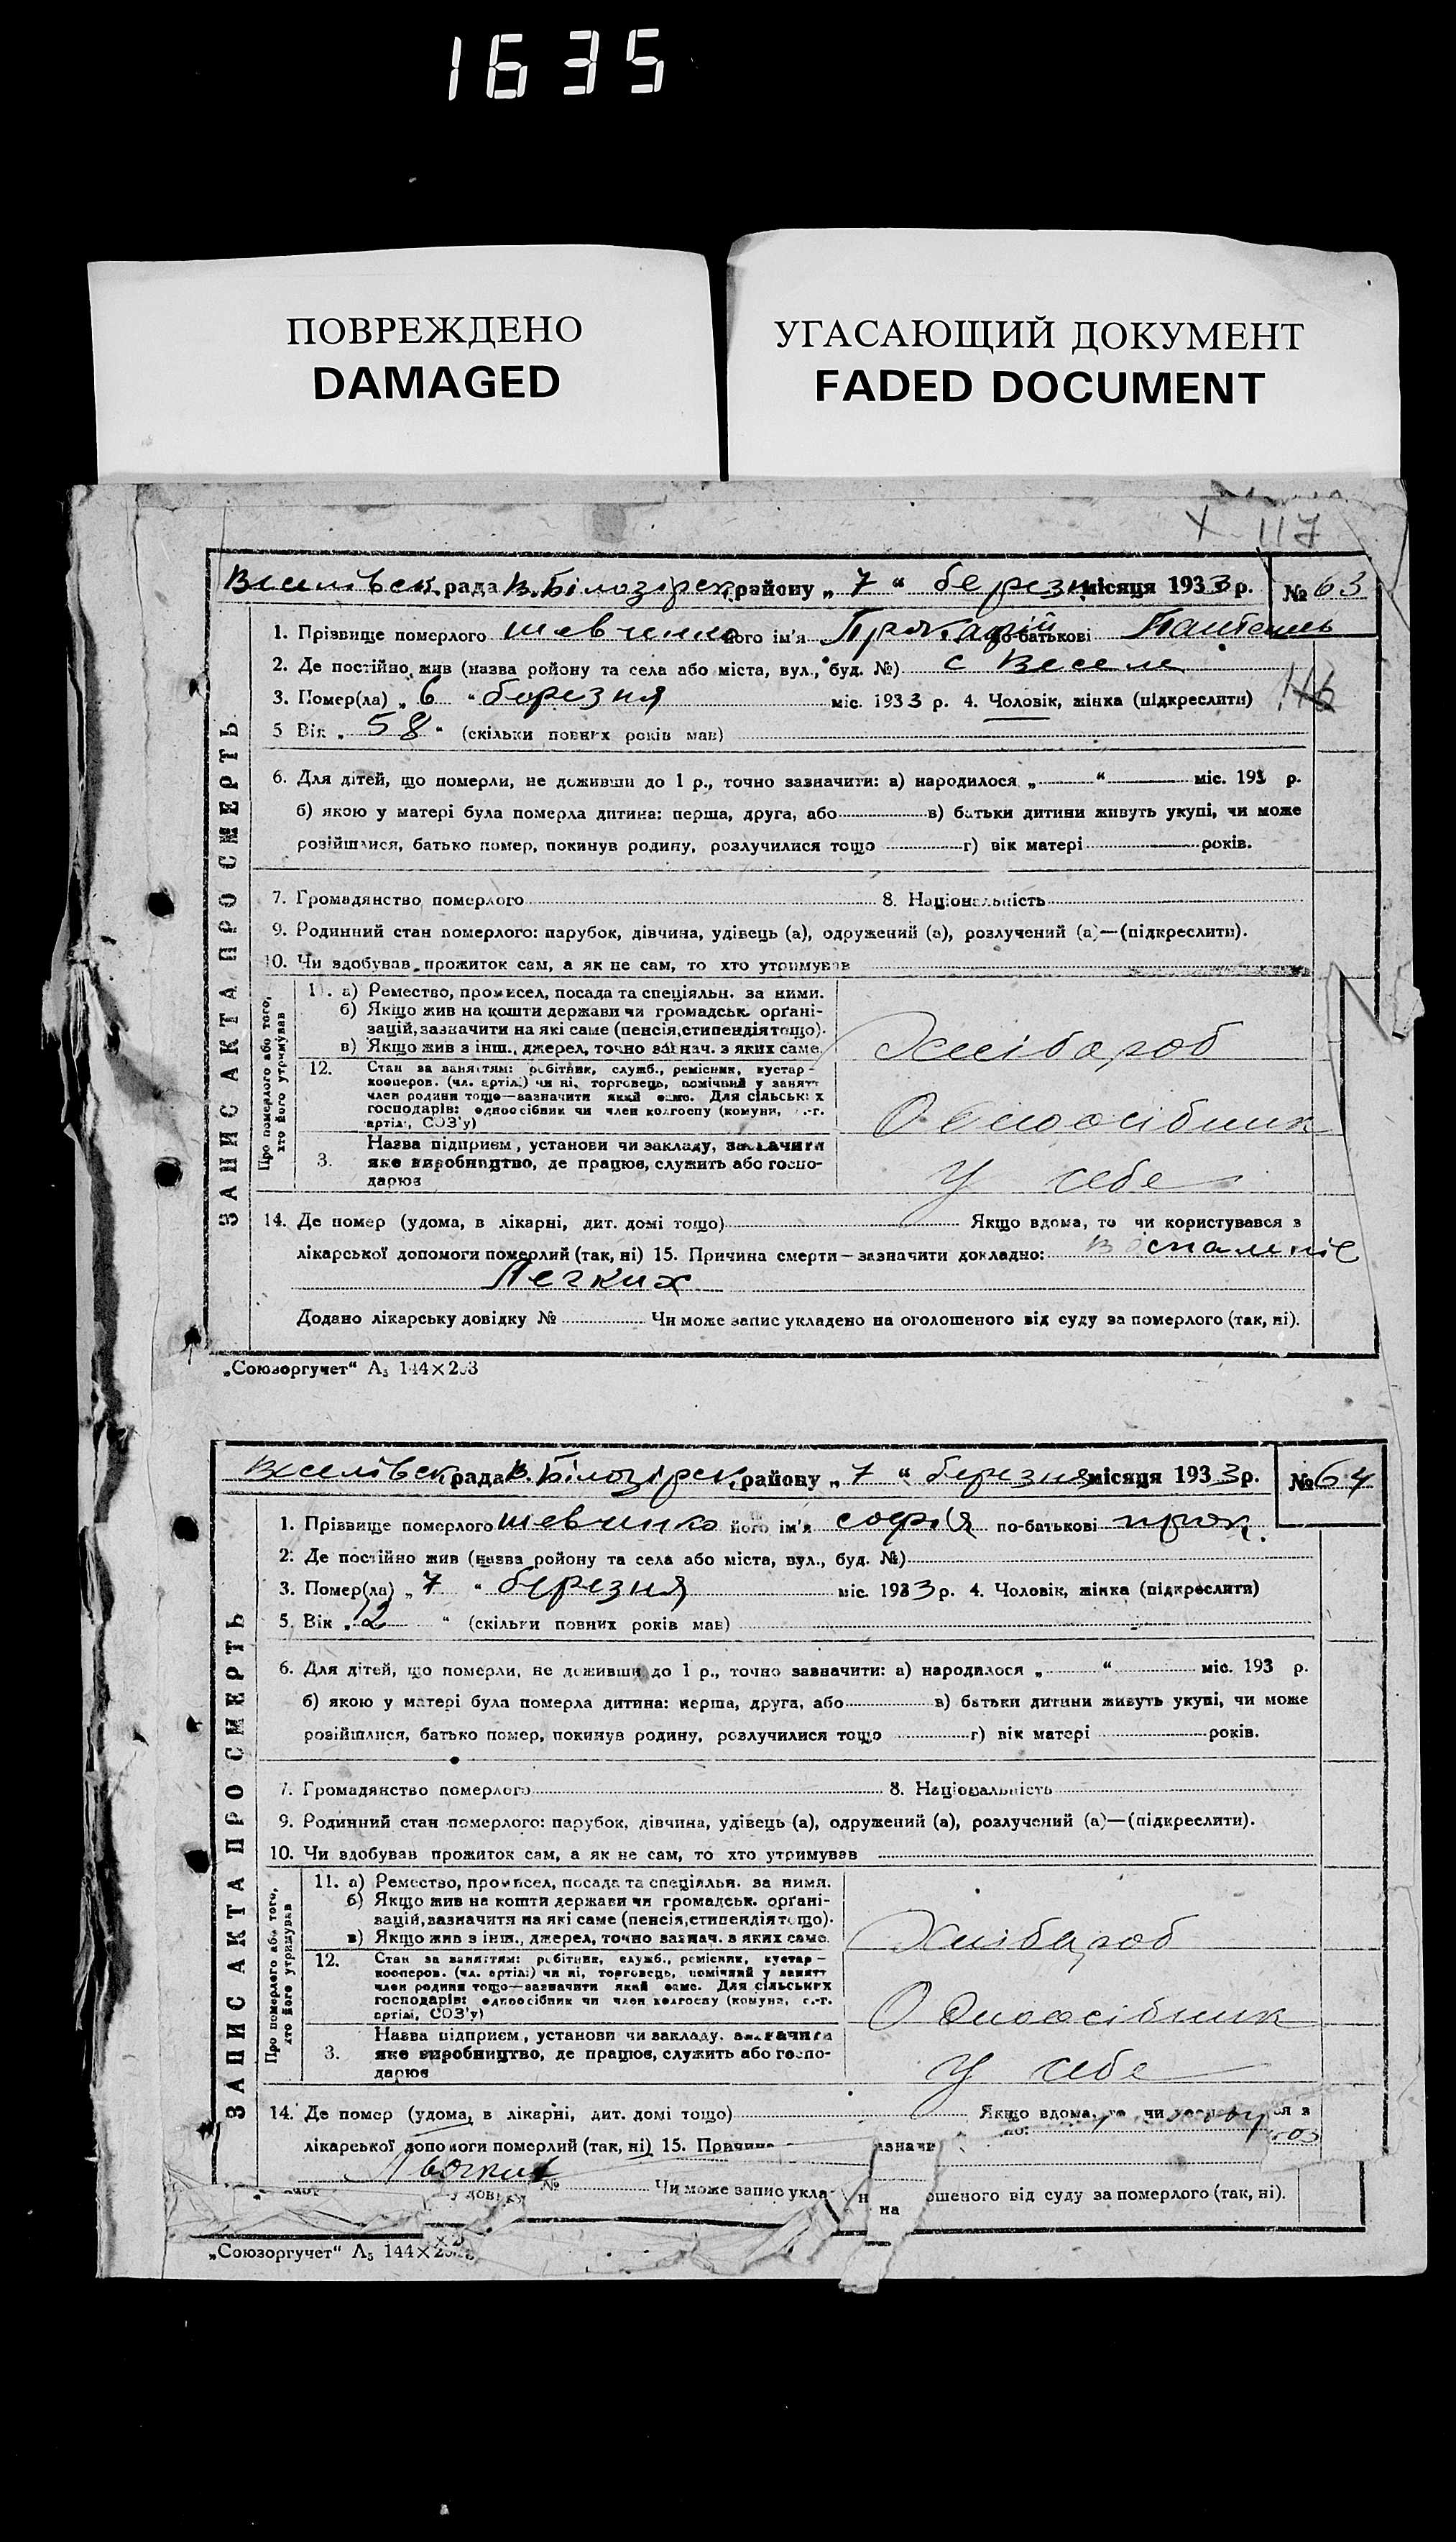 1635
ПОВРЕЖДЕНО
DAMAGED
УГАСАЮЩИЙ ДОКУМЕНТ
FADED DOCUMENT
117
Веселівськ. рада В. Білозірськ. району „ 7 “ березня місяця 1933 р. № 63
ЗАПИС АКТА ПРО СМЕРТЬ
1. Прізвище померлого Шевченко його ім'я по-батькові
2. Де постійно жив (назва ройону та села або міста, вул., буд. №) с Веселе
3. Помер(ла) „ 6 “ березня міс. 1933 р. 4. Чоловік, жінка (підкреслити)
116
5 Вік „ 58 “ (скільки повних років мав)
6. Для дітей, що померли, не доживши до 1 р., точно зазначити: а) народилося „ “ міс. 193 р.
б) якою у матері була померла дитина: перша, друга, або в) батьки дитини живуть укупі, чи може
розійшлися, батько помер, покинув родину, розлучилися тощо г) вік матері років.
7. Громадянство померлого 8. Національність
9. Родинний стан померлого: парубок, дівчина, удівець (а), одружений (а), розлучений (а)—(підкреслити).
10. Чи здобував прожиток сам, а як не сам, то хто утримував
Про померлого або того, хто його утримував
11. а) Ремество, промисел, посада та спеціяльн. за ними.
б) Якщо жив на кошти держави чи громадськ. органі-
зацій, зазначити на які саме (пенсія, стипендія тощо).
в) Якщо жив з інш. джерел, точно зазнач. з яких саме.
Хлібороб
12. Стан за заняттям: робітник, служб., ремісник, кустар-
кооперов. (чл. артіл.) чи ні, торговець, помічний у занятт
член родини тощо—зазначити який саме. Для сільських
господарів: одноосібник чи член колгоспу (комуни, с.-г.
артілі, СОЗ'у)
Одноосібник
3. Назва підприєм, установи чи закладу, зазначити
яке виробництво, де працює, служить або госпо-
дарює
У себе
14. Де помер (удома, в лікарні, дит. домі тощо) Якщо вдома, то чи користувався з
лікарської допомоги померлий (так, ні) 15. Причина смерти—зазначити докладно: воспаленіе
Легких
Додано лікарську довідку № Чи може запис укладено на оголошеного від суду за померлого (так, ні).
„Союзоргучет“ А₅ 144×203
Веселівськ рада В. Білозірськ. району „ 7 “ березня місяця 1933 р. № 64
ЗАПИС АКТА ПРО СМЕРТЬ
1. Прізвище померлого Шевченко його ім'я Софія по-батькові Прок.
2. Де постійно жив (назва ройону та села або міста, вул., буд. №)
3. Помер(ла) „ 7 “ березня міс. 1933 р. 4. Чоловік, жінка (підкреслити)
5. Вік „ 12 “ (скільки повних років мав)
6. Для дітей, що померли, не доживши до 1 р., точно зазначити: а) народилося „ “ міс. 193 р.
б) якою у матері була померла дитина: перша, друга, або в) батьки дитини живуть укупі, чи може
розійшлися, батько помер, покинув родину, розлучилися тощо г) вік матері років.
7. Громадянство померлого 8. Національність
9. Родинний стан померлого: парубок, дівчина, удівець (а), одружений (а), розлучений (а)—(підкреслити).
10. Чи здобував прожиток сам, а як не сам, то хто утримував
Про померлого або того, хто його утримував
11. а) Ремество, промисел, посада та спеціяльн. за ними.
б) Якщо жив на кошти держави чи громадськ. органі-
зацій, зазначити на які саме (пенсія, стипендія тощо).
в) Якщо жив з інш. джерел, точно зазнач. з яких саме.
Хлібороб
12. Стан за заняттям: робітник, служб., ремісник, кустар-
кооперов. (чл. артіл.) чи ні, торговець, помічний у занятт
член родини тощо—зазначити який саме. Для сільських
господарів: одноосібник чи член колгоспу (комуни, с.-г.
артілі, СОЗ'у)
Одноосібник
3. Назва підприєм, установи чи закладу, зазначити
яке виробництво, де працює, служить або госпо-
дарює
У себе
14. Де помер (удома, в лікарні, дит. домі тощо) Якщо вдома, то чи
лікарської допомоги померлий (так, ні) 15. Причина
№ Чи може запис укла на ошеного від суду за померлого (так, ні).
„Союзоргучет“ А₅ 144×20